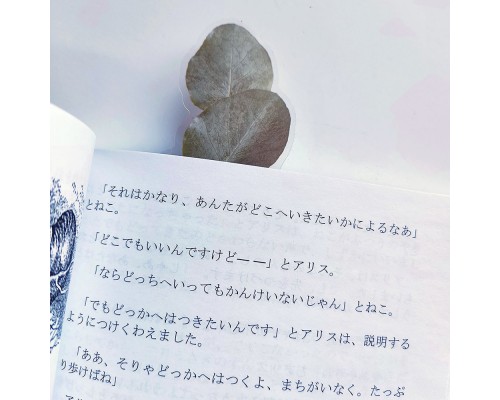 「それはかなり、あんたがどこへいきたいかによるなあ」
とねこ。
「どこでもいいんですけどーー」とアリス。
「ならどっちへいってもかんけいないじゃん」とねこ。
「でもどっかへはつきたいんです」とアリスは、説明する
ようにつけくわえました。
「ああ、そりゃどっかへはつくよ、まちがいなく。たっぷ
り歩けばね」